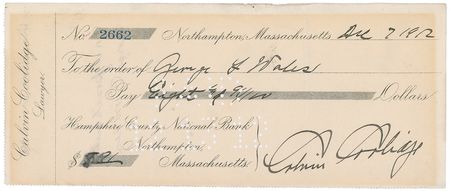 Calvin Coolidge
Lawyer
No 2662 Northampton, Massachusetts. Dec 7 1912
To the order of George L Wales
Pay Eight Dollars
Hampshire County National Bank
Northampton,
Massachusetts
$ 8
Calvin Coolidge